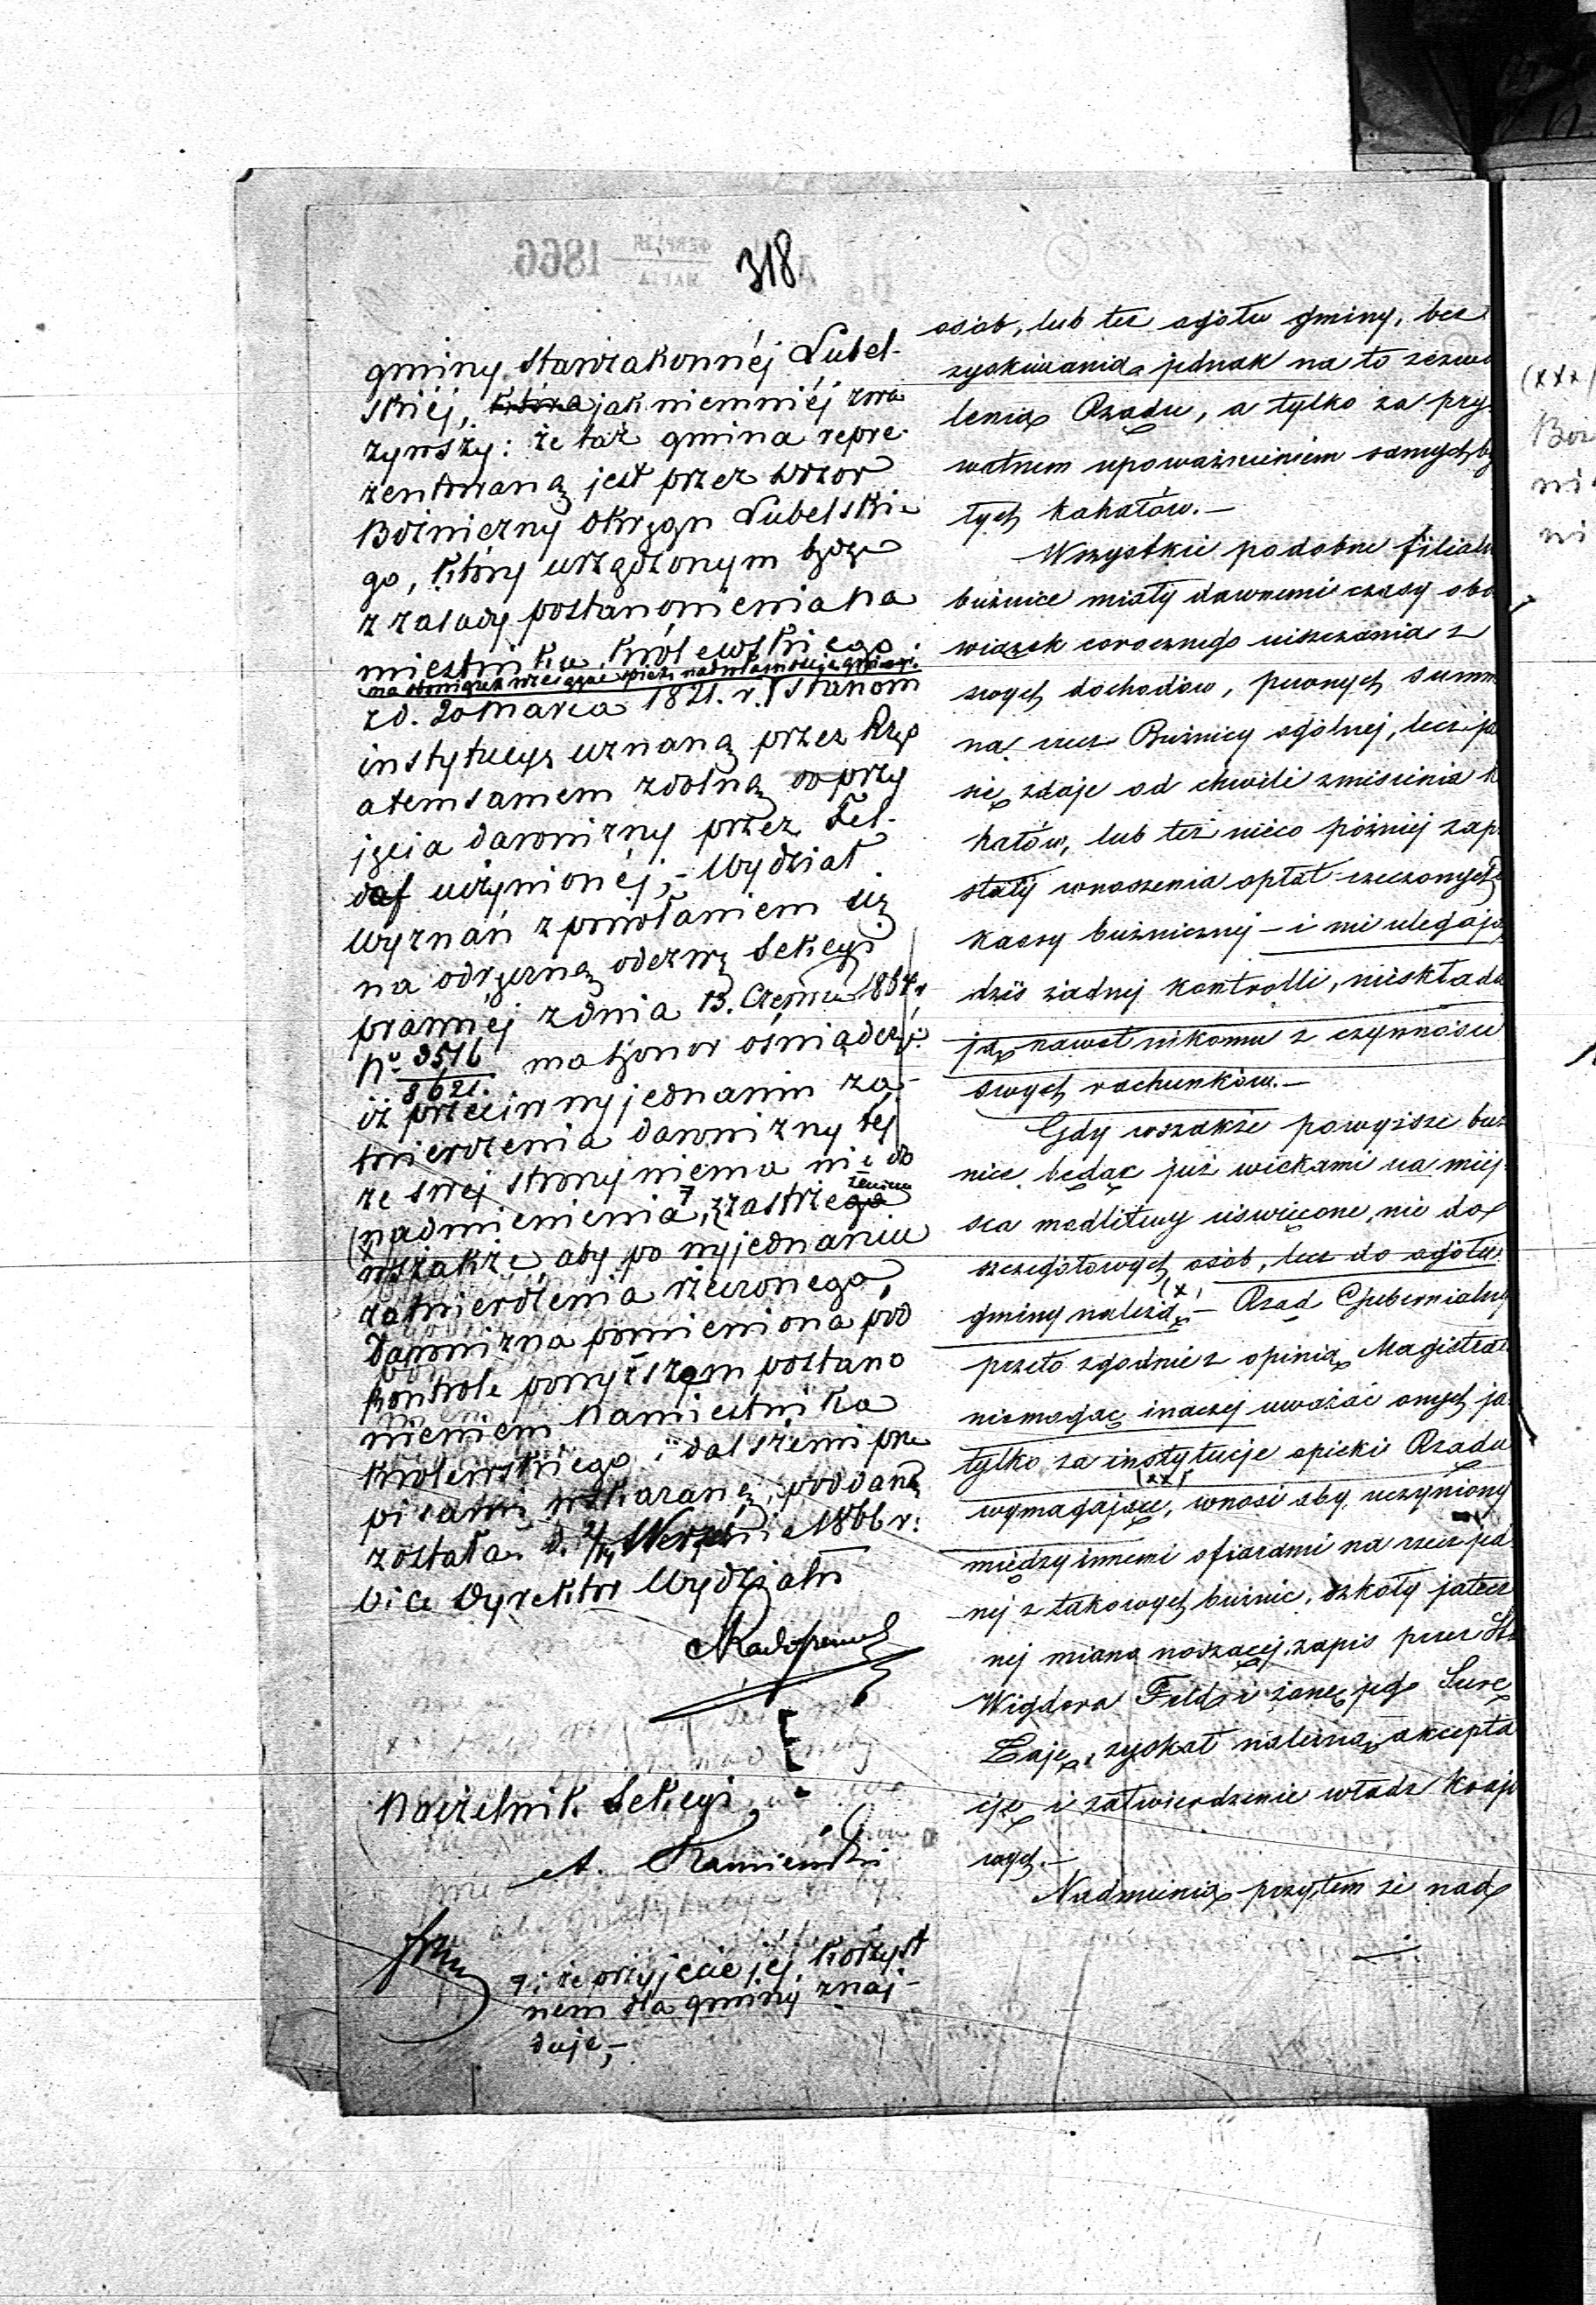 318
gminy Starozakonnéj Lubel-
skiéj, która jak niemniéj zwa
żywszy: że taż gmina repre-
zentowaną jest przez Dozor
Bóżniczny Okręgu Lubelskie
go, który urządzonym będąc
z zasady postanowienia Na
miestnika Królewskiego
z d. 20 Marca 1821. r. stanowi
instytucyę uznaną przez Rząd
a tem samem zdolną do przy
jęcia darowizny przez Fel-
dof uczynionéj,- Wydział
Wyznań z powołaniem się
na odręczną odezwę Sekcyi
prawnéj z dnia 13. Czerwca 1864 r
No 3516/8621. ma honor oświadczyć
iż przeciw wyjednaniu za-
twierdzenia darowizny tej
ze swej strony niema nic do
nadmienienia, z zastrzeżeniem
(x) wszakże, aby po wyjednaniu
zatwierdzenia rzeczonego,
Darowizna pomieniona pod
kontrolę powyższem postano
wieniem Namiestnika
Królewskiego i dalszemi prze
pisami wskazaną, poddaną
została. d. 2/14 1866 r:
Vice Dyrektor Wydziału
Naczelnik Sekcyi
A. Kamieński
7: że przyjęcie jej korzyst
nem dla gminy znaj-
duje,-
osób, lub też ogółu gminy, bez
zyskiwania jednak na to zezwo
lenia Rządu, a tylko za pry
watnem upoważnieniem samych by
łych kahałów.-
Wszystkie podobne filialn
bużnice miały dawnemi czasy obo
wiązek corocznego uiszczania z
swych dochodów, pewnych summ
na rzecz Bużnicy ogólnej, lecz ja
się zdaje od chwili zniesienia k
hałów, lub też nieco później zapr
stały wnoszenia opłat rzeczonych
kassy bużnicznej - i nie ulegają
dziś żadnej kontrolli, nieskłada
jąc nawet nikomu z czynności
swych rachunków.-
Gdy wszakże powyższe buż
nice, będąc już wiekami na miej-
sca modlitwy uświęcone, nie do
szczegółowych osób, lecz do ogółu
gminy należą, (x) - Rząd Gubernialny
przeto zgodnie z opinią Magistra
niemogąc inaczej uważać onych ja
tylko za instytucje opieki Rządu
wymagające, (xx) wnosi aby uczyniony
między innemi ofiarami na rzecz jed
nej z takowych bużnic, szkoły jatecz
nej miano noszącej, zapis przez
Wigdora Feld i żonę jego Surę
Łaję, zyskał należną akcepta
cję i zatwierdzenie władz krajo
wych.-
Nadmienia przytem że nad
(xxx)